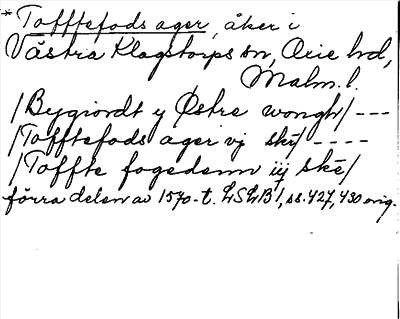 * Tofftefods ager, åker i
Västra Klagstorps sn, Oxie hd,
Malm. l.
/Bygiordt y Østre wongh/ ---
/Tofftefods ager vj ske/ ----
/Toffte fogedenn iij ske/
förra delen av 1570-t. LSLB 1, ss. 427, 430 orig.